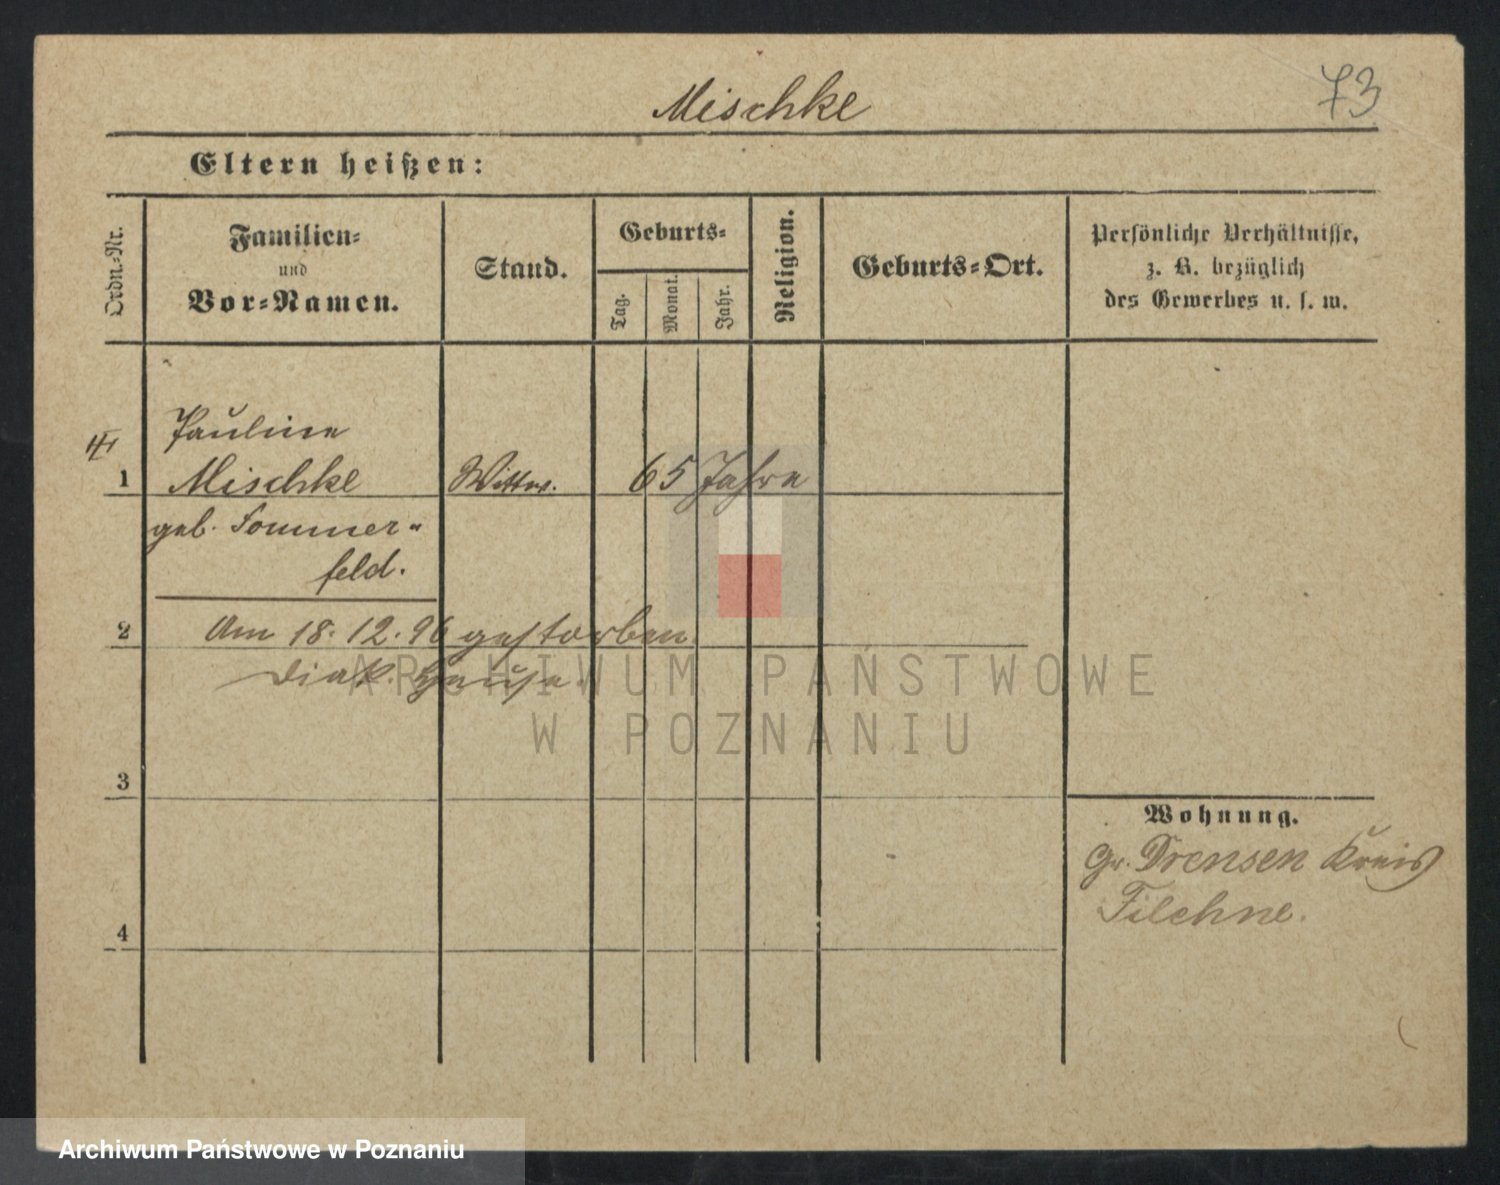 Mischke
73
Eltern heißen:
Ordn.-Nr.
Familien-
und
Vor-Namen.
Stand.
Geburts-
Tag.
Monat.
Jahr.
Religion.
Geburts-Ort.
Persönliche Verhältnisse,
z. B. bezüglich
des Gewerbes u. s. w.
Pauline
1 Mischke Wittw. 65 Jahre
geb. Sommer-
feld.
2 Am 18.12.96 gestorben.
Diak. Hause.
ARCHIWUM PAŃSTWOWE
W POZNANIU
3
Wohnung.
Gr. Drensen Kreis
Filehne.
4
Archiwum Państwowe w Poznaniu